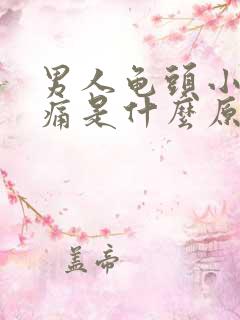 男人龟頭小
痛是什麼原
盖帝